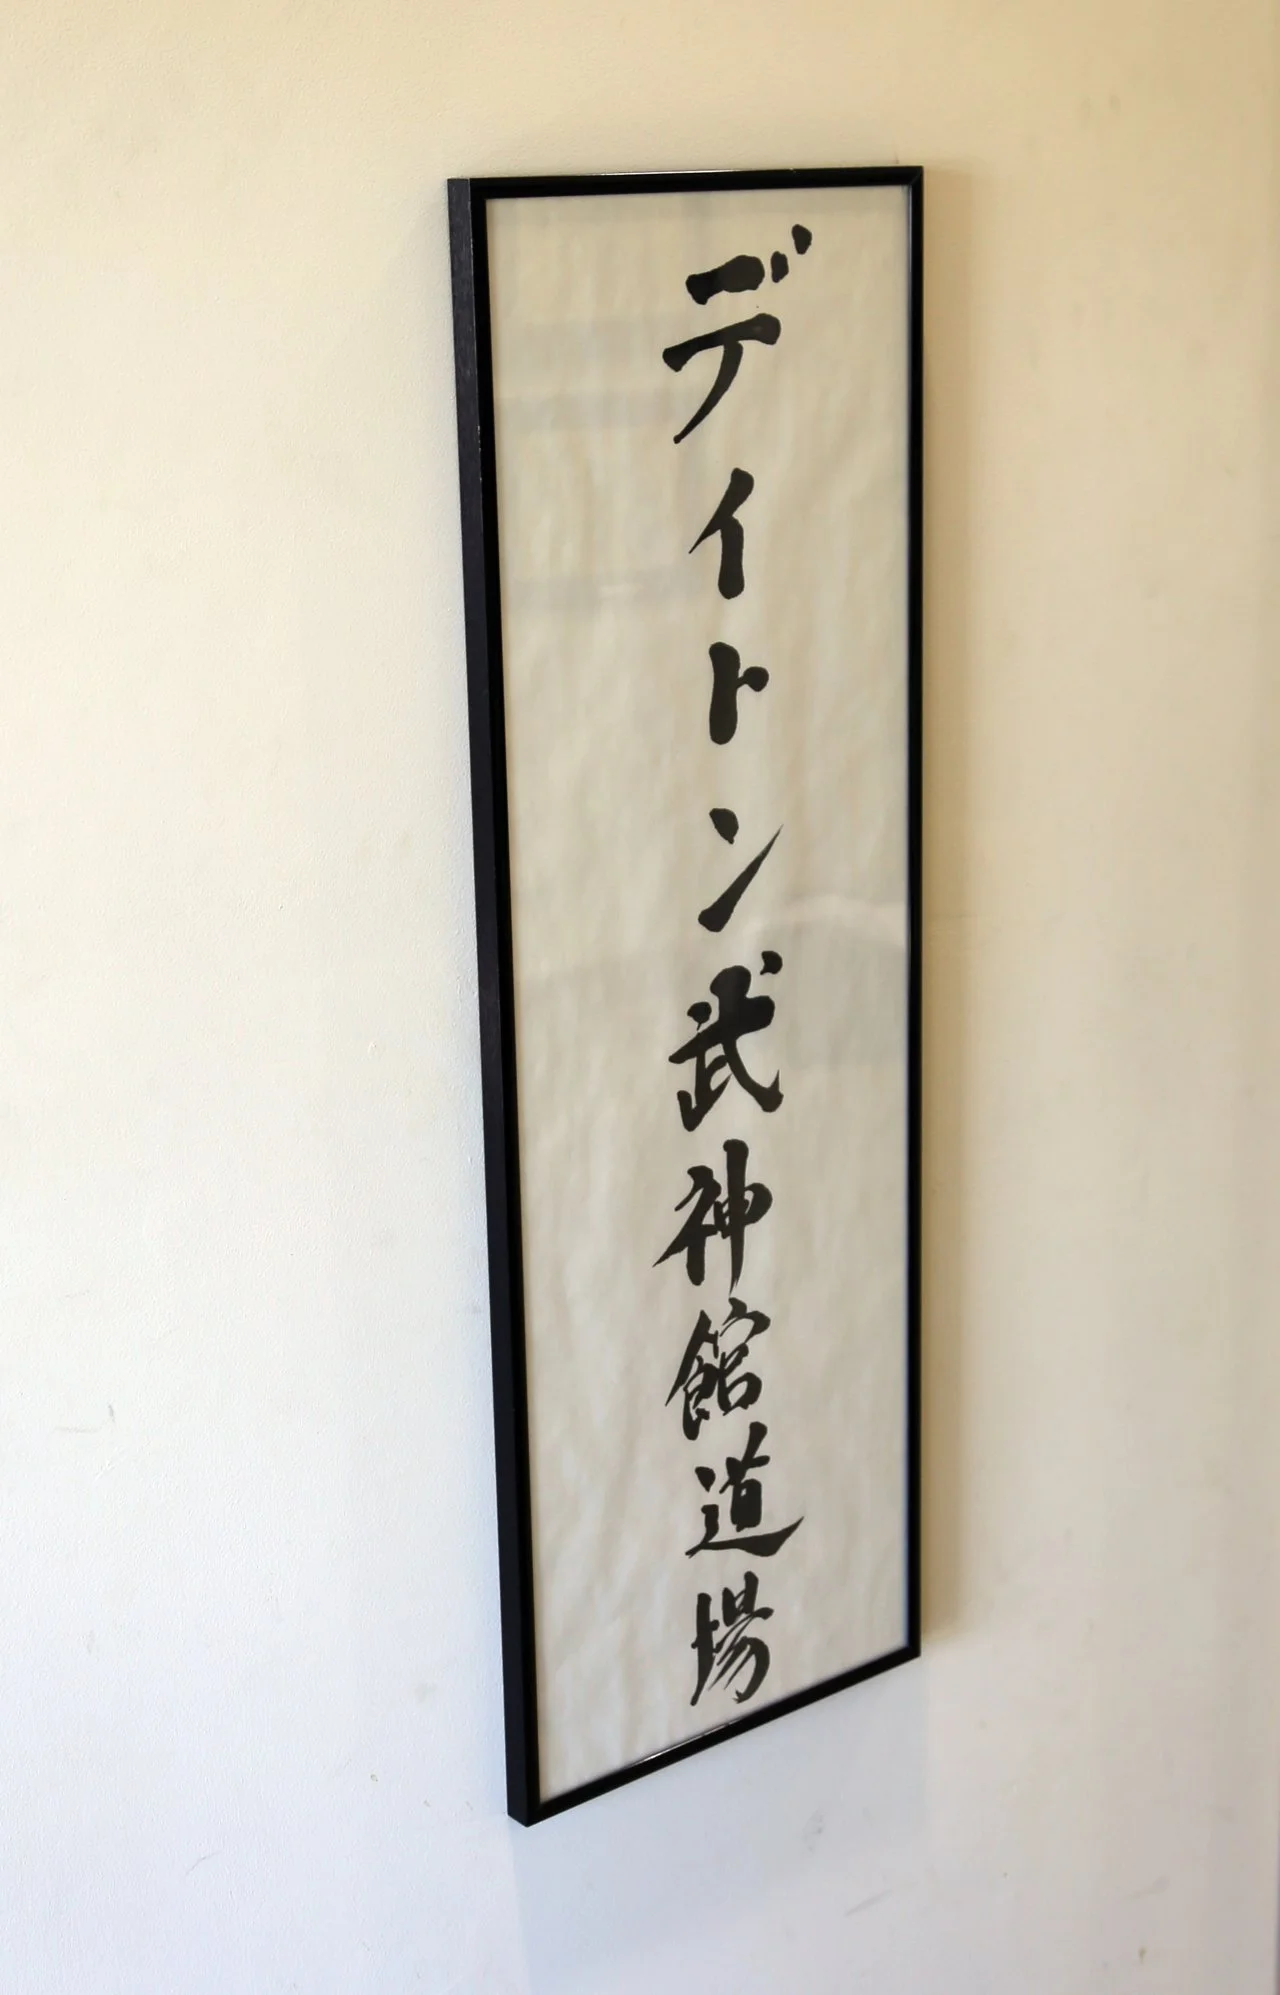 デイトン武神館道場